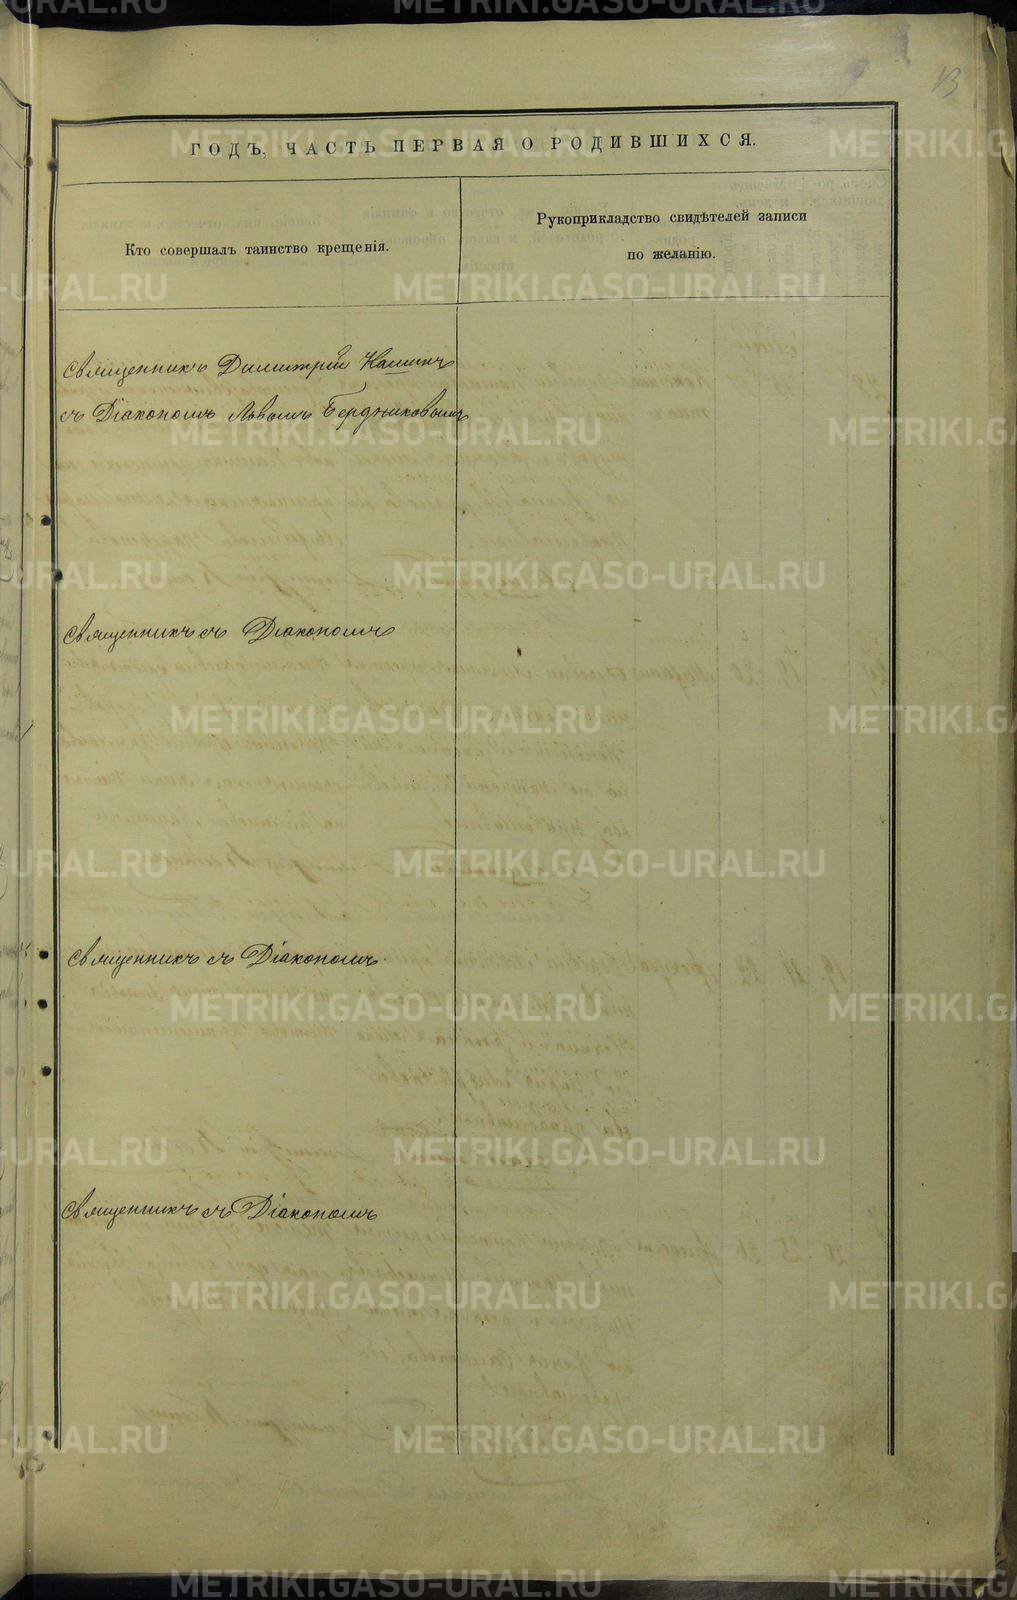 13
ГОДЪ, ЧАСТЬ ПЕРВАЯ О РОДИВШИХСЯ.
Кто совершалъ таинство крещенія.
Рукоприкладство свидѣтелей записи
по желанію.
Священникъ Димитрій Кашинъ
съ Діакономъ Львомъ Бердниковымъ
Священникъ съ Діакономъ
Священникъ съ Діакономъ
Священникъ съ Діакономъ
METRIKI.GASO-URAL.RU